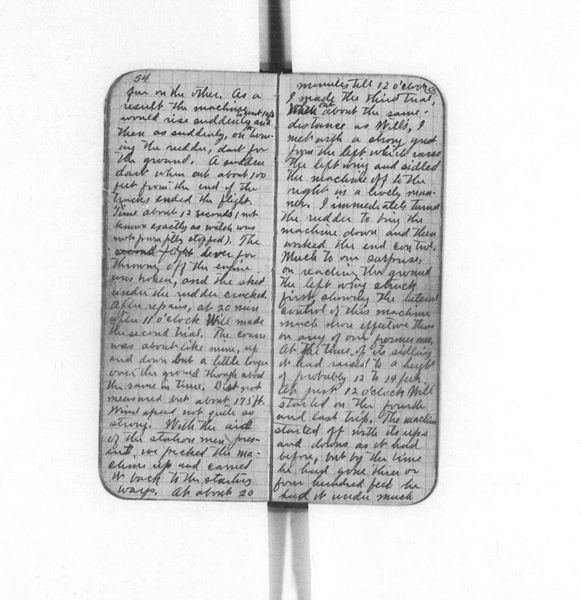 54
far on the other. As a
result the machine
would rise suddenly to about 10 ft. and
then as suddenly, on turn-
ing the rudder, dart for
the ground. A sudden
dart when out about 100
feet from the end of the
tracks ended the flight.
Time about 12 seconds (not
known exactly as watch was
not promptly stopped). The
second flight lever for
throwing off the engine
was broken, and the skid
under the rudder cracked.
After repairs, at 20 min.
after 11 o'clock Will made
the second trial. The course
was about like mine, up
and down but a little longer
over the ground though about
the same in time. Dist. not
measured but about 175 ft.
Wind speed not quite so
strong. With the aid
of the station men pres-
ent, we picked the ma-
chine up and carried
it back to the starting
ways. At about 20
minutes till 12 o'clock
I made the third trial.
When out about the same
distance as Will's, I
met with a strong gust
from the left which raised
the left wing and sidled
the machine off to the
right in a lively man-
ner. I immediately turned
the rudder to bring the
machine down and then
worked the end control.
Much to our surprise
on reaching the ground
the left wing struck
first, showing the lateral
control of this machine
much more effective than
on any of our former ones.
At the time of its sidling
it had raised to a height
of probably 12 to 14 feet.
At just 12 o'clock Will
started on the fourth
and last trip. The machine
started off with its ups
and downs as it had
before, but by the time
he had gone three or
four hundred feet he
had it under much